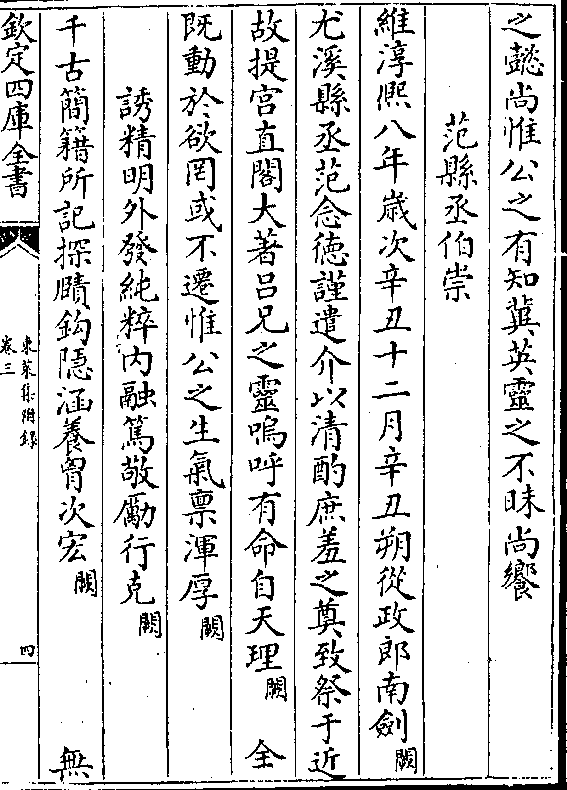 之懿尚惟公之有知冀英靈之不昧尚饗
范縣丞伯崇
維淳熙八年歲次辛丑十二月辛丑朔從政郎南劍闕
尤溪縣丞范念德謹遣介以清酌庶羞之奠致祭于近
故提宫直閣大著吕兄之靈嗚呼有命自天理闕全
既動於欲罔或不遷惟公之生氣禀渾厚闕
誘精明外發純粹内融篤敬勵行克闕
千古簡籍所記探賾鈎隱涵養胷次宏闕無
欽定四庫全書
東萊集附録
卷三
四